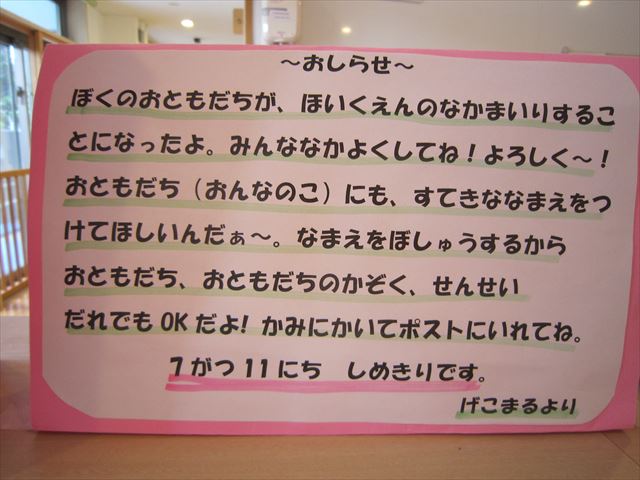 ～おしらせ～
ぼくのおともだちが、ほいくえんのなかまいりするこ
とになったよ。みんななかよくしてね！よろしく～！
おともだち（おんなのこ）にも、すてきななまえをつ
けてほしいんだぁ～。なまえをぼしゅうするから
おともだち、おともだちのかぞく、せんせい
だれでも OK だよ! かみにかいてポストにいれてね。
7 がつ 11 にち　しめきりです。
げこまるより